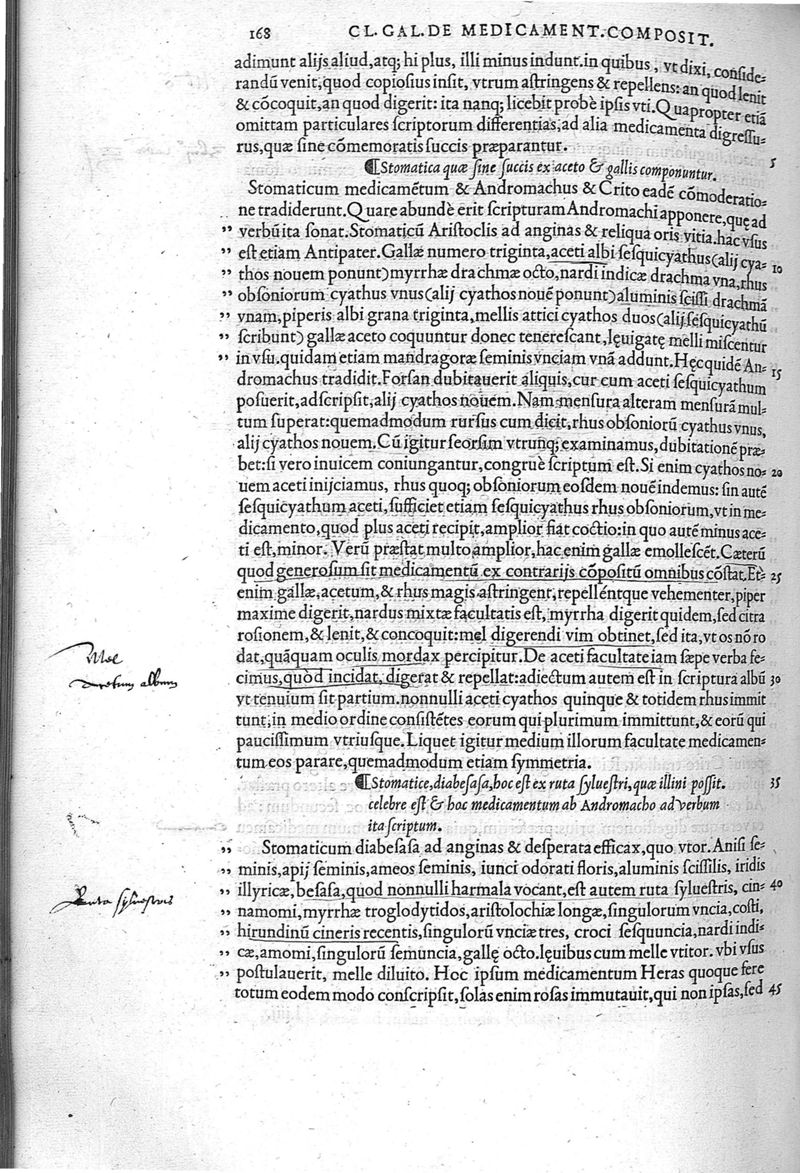 168 CL. GAL. DE MEDICAMENT. COMPOSIT.
adimunt alijs aliud, atq; hi plus, illi minus indunt. in quibus, vt dixi, conſide-
randũ venit, quod copioſius inſit, vtrum aſtringens & repellens: an quod lenit
& cõcoquit, an quod digerit: ita nanq; licebit probè ipſis vti. Quapropter etiã
omittam particulares ſcriptorum differentias, ad alia medicamenta digreſſu-
rus, quæ ſine cõmemoratis ſuccis præparantur.
¶Stomatica quæ ſine ſuccis ex aceto & gallis componuntur. 5
Stomaticum medicamẽtum & Andromachus & Crito eadẽ cõmoderatio-
ne tradiderunt. Quare abundè erit ſcripturam Andromachi apponere, quę ad
„ verbũ ita ſonat. Stomaticũ Ariſtoclis ad anginas & reliqua oris vitia. hac vſus
„ eſt etiam Antipater. Gallæ numero triginta, aceti albi ſeſquicyathus (alij cya- 10
„ thos nouem ponunt) myrrhæ drachmæ octo, nardi indicæ drachma vna, rhus
„ obſoniorum cyathus vnus (alij cyathos nouẽ ponunt) aluminis ſciſſi drachmã
„ vnam, piperis albi grana triginta, mellis attici cyathos duos (alij ſeſquicyathũ
„ ſcribunt) gallæ aceto coquuntur donec tenereſcant, lęuigatę melli miſcentur
„ in vſu. quidam etiam mandragoræ ſeminis vnciam vnã addunt. Hęc quidẽ An- 15
dromachus tradidit. Forſan dubitauerit aliquis, cur cum aceti ſeſquicyathum
poſuerit, adſcripſit, alij cyathos nouem. Nam menſura alteram menſurã mul-
tum ſuperat: quemadmodum rurſus cum dicit, rhus obſoniorũ cyathus vnus,
alij cyathos nouem. Cũ igitur ſeorſim vtrunq; examinamus, dubitationẽ præ-
bet: ſi vero inuicem coniungantur, congruè ſcriptum eſt. Si enim cyathos no- 20
uem aceti inijciamus, rhus quoq; obſoniorum eoſdem nouẽ indemus: ſin autẽ
ſeſquicyathum aceti, ſufficiet etiam ſeſquicyathus rhus obſoniorum, vt in me-
dicamento, quod plus aceti recipit, amplior fiat coctio: in quo autẽ minus ace-
ti eſt, minor. Verũ præſtat multo amplior, hac enim gallæ emolleſcẽt. Cæterũ
quod generoſum ſit medicamentũ ex contrarijs cõpoſitũ omnibus cõſtat. Et- 25
enim gallæ, acetum, & rhus magis aſtringent, repellẽntque vehementer, piper
maxime digerit, nardus mixtæ facultatis eſt, myrrha digerit quidem, ſed citra
roſionem, & lenit, & concoquit: mel digerendi vim obtinet, ſed ita, vt os nõ ro
dat, quãquam oculis mordax percipitur. De aceti facultate iam ſæpe verba fe-
cimus, quòd incidat, digerat & repellat: adiectum autem eſt in ſcriptura albũ 30
vt tenuium ſit partium. nonnulli aceti cyathos quinque & totidem rhus immit
tunt, in medio ordine conſiſtẽtes eorum qui plurimum immittunt, & eorũ qui
pauciſſimum vtriuſque. Liquet igitur medium illorum facultate medicamen-
tum eos parare, quemadmodum etiam ſymmetria.
¶Stomatice, diabeſaſa, hoc eſt ex ruta ſylueſtri, quæ illini poſſit. 35
celebre eſt & hoc medicamentum ab Andromacho ad verbum
ita ſcriptum.
„ Stomaticum diabeſaſa ad anginas & deſperata efficax, quo vtor. Aniſi ſe-
„ minis, apij ſeminis, ameos ſeminis, iunci odorati floris, aluminis ſciſſilis, iridis
„ illyricæ, beſaſa, quod nonnulli harmala vocant, eſt autem ruta ſylueſtris, cin- 40
„ namomi, myrrhæ troglodytidos, ariſtolochiæ longæ, ſingulorum vncia, coſti,
„ hirundinũ cineris recentis, ſingulorũ vnciæ tres, croci ſeſquuncia, nardi indi-
„ cæ, amomi, ſingulorũ ſemuncia, gallę octo. lęuibus cum melle vtitor. vbi vſus
„ poſtulauerit, melle diluito. Hoc ipſum medicamentum Heras quoque fere
totum eodem modo conſcripſit, ſolas enim roſas immutauit, qui non ipſas, ſed 45
Mel
acetum album
Ruta ſylueſtris